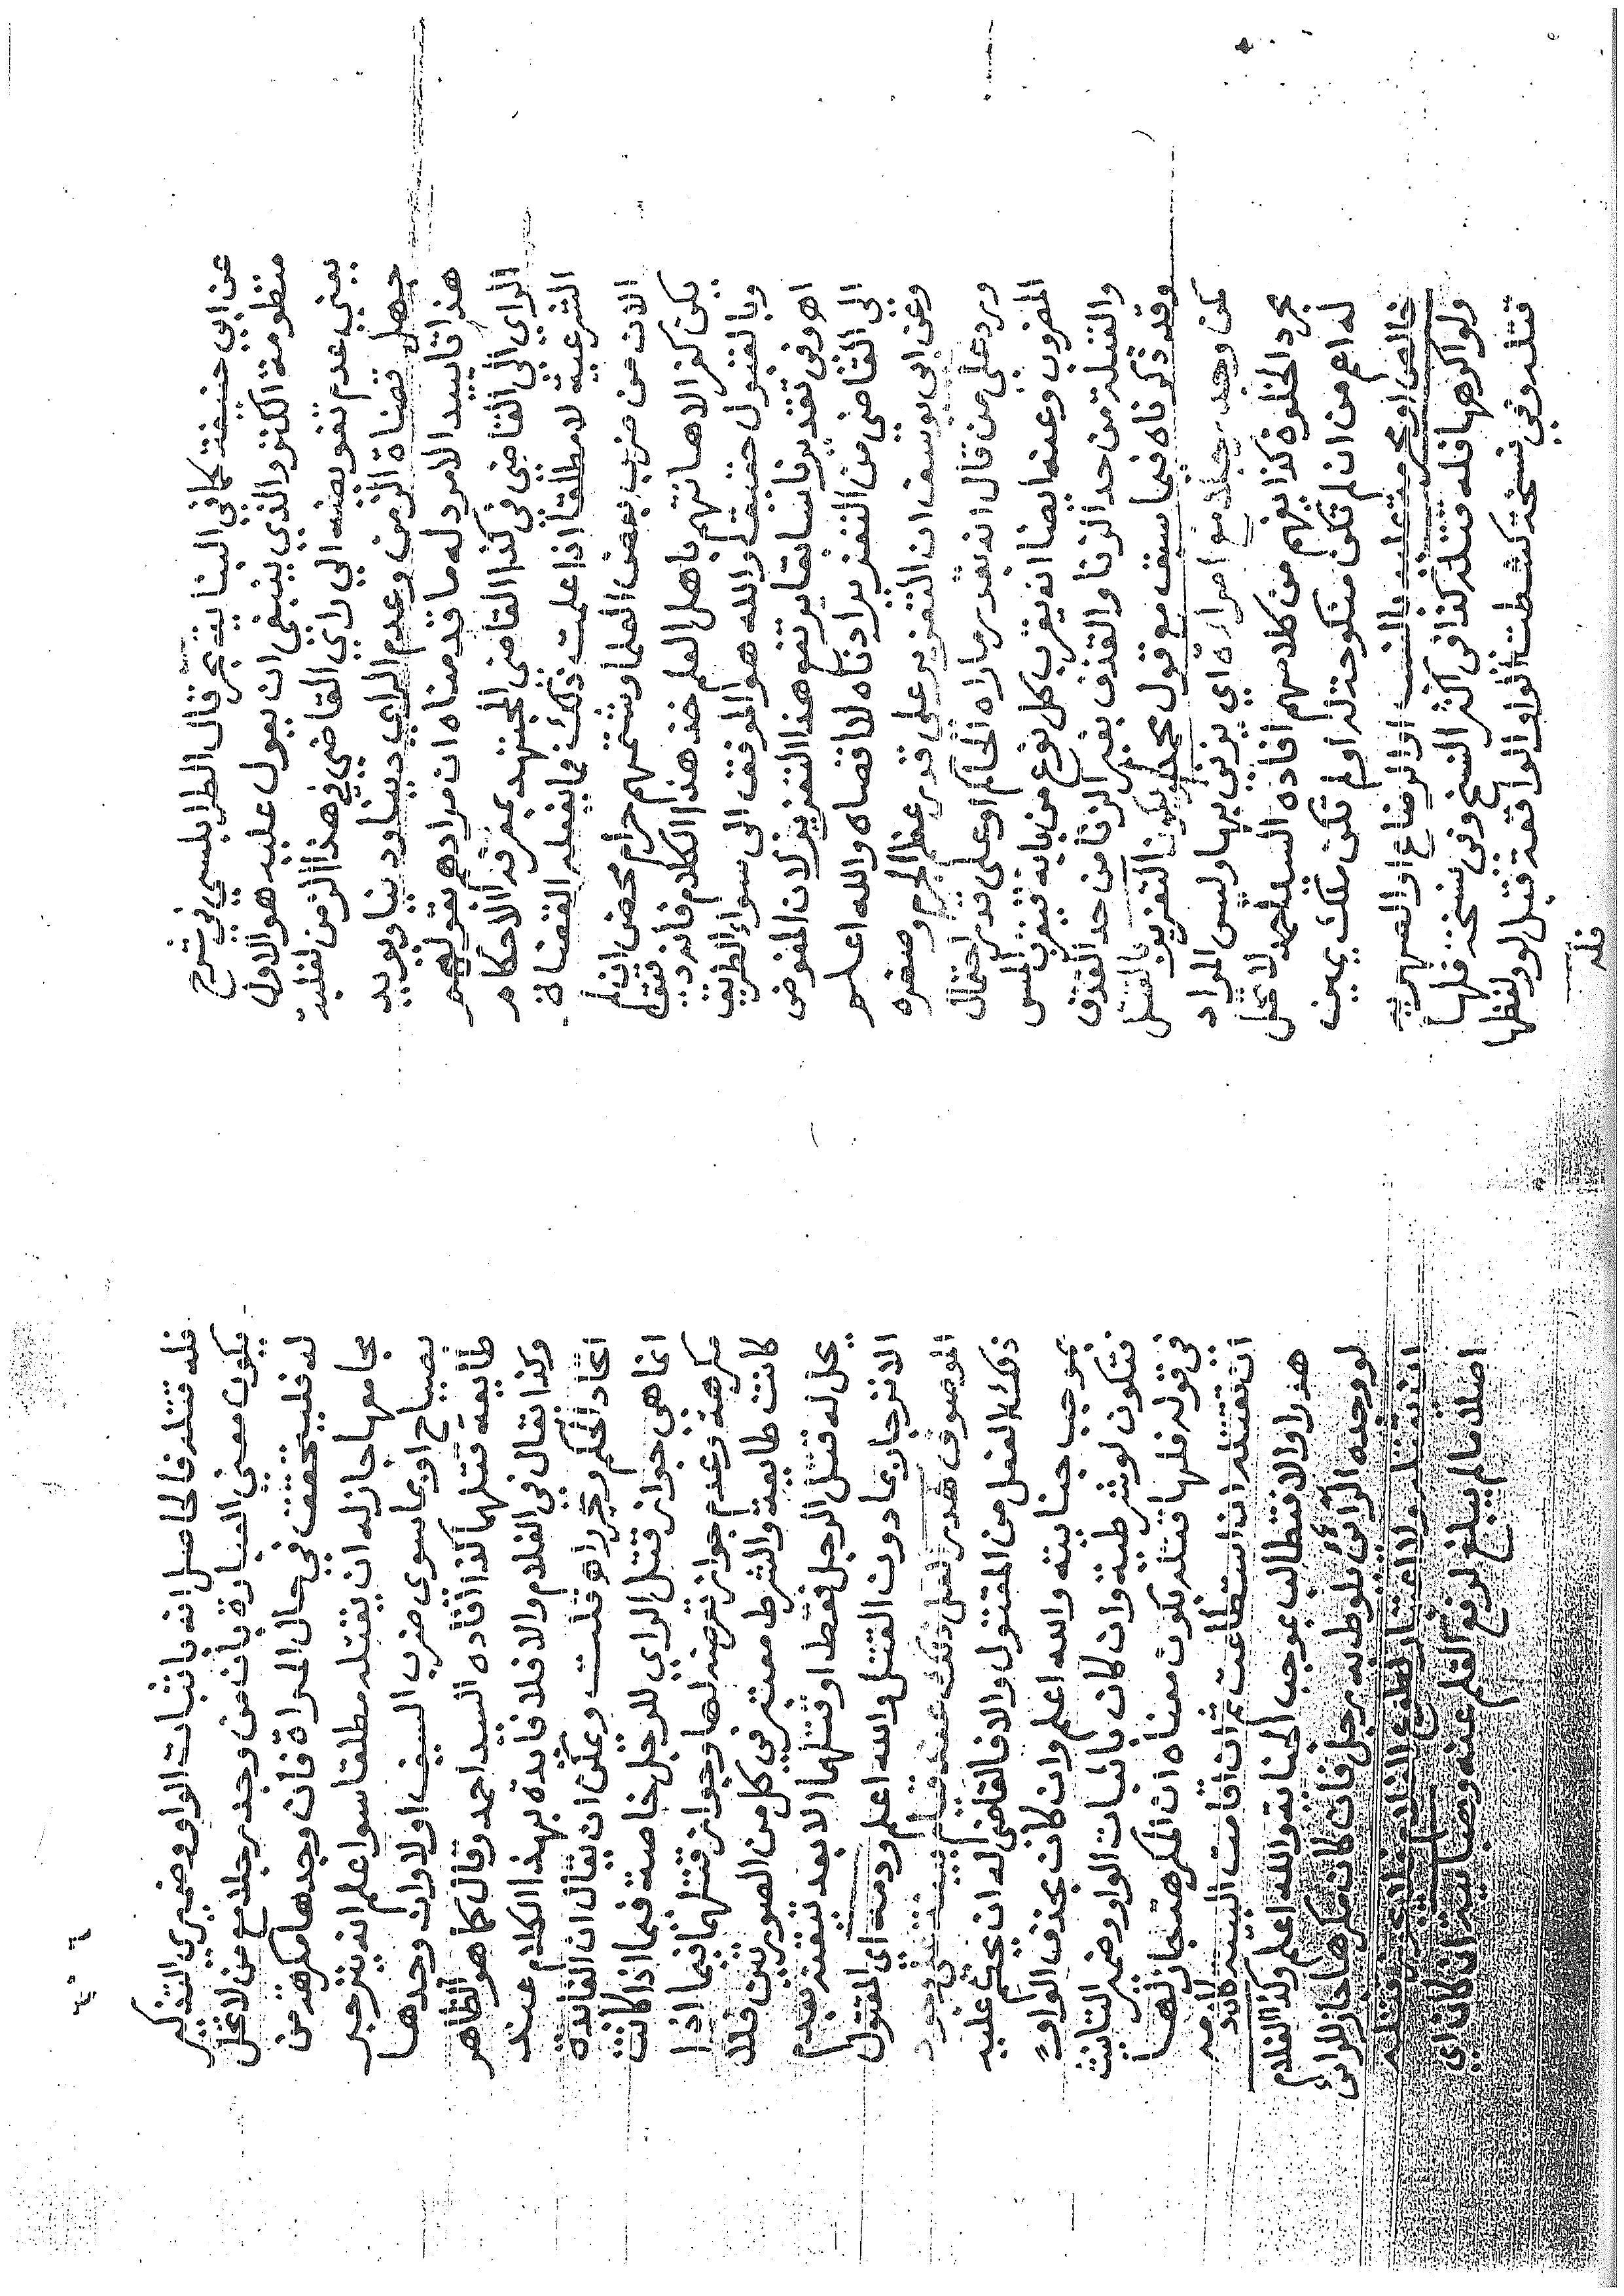 عن ابي حنيفة كما في البناية بحر قال الطرابلسي في شرح
منظومة الكنز والذي ينبغي ان يعول عليه هو الاول
يعني عدم تفويضه الي راي القاضي في هذا الزمن لغلبة
جهل قضاة الزمن وعدم الراي ديناودنيا ويويد
هذا تاييد الامرد له ما قدمناه ان مرادهم بقولهم
الراي الي القاضي في كذا القاضي المجتهد بمعرفة الاحكام
الشرعية لا مطلقا اذا علمت ذلك فما يفعله القضاة
الان من ضرب بعض العلما وشتمهم حرام محض ان لم
يكن كفرا لاهانتهم باهل العلم خذ هذا الكلام فانه دقيق
وبالقبول حقيق والله هو الموفق الى سواء الطريق
اهـ وفي تقديرنا بسابقا يرتفع هذا التعزير لان المفوض
الى القاضي من التعزير ادناه لا اقصاه والله اعلم
وعن ابي يوسف ان التعزير على قدر عظم الجرم وصغره
ورد علي من قال انه بقدر ما راه الحاكم وعلى قدر احتمال
المضروب وعنه ايضا انه يقرب كل نوع من بابه فيقرب المس
والقبلة من حد الزنا والقذف بغير الزنا من حد القذف
وقد ذكرناه فيما سبق مع قول محمد ويكون التعزير بالقتل
كمن وجد رجلا مع امراة اي يزني بها وليس المراد
مجرد الخلوة كذا يفهم من كلامهم افاده السيد احمد لا تحل
له اعم من ان لم تكن منكوحة له او لم تكن ملك يمين
خالص او محرمة عليه بالنسب او الرضاع او الصهرية
ولو اكرهها فله قتله كذا في اكثر النسخ وفي نسخة فلها
قتله وفي نسخة كشطت الواو الواقعة قبل لو ولفظها
فله
فله قتله فالحاصل انه باثبات الواو وضميري التذكير
يكون معني العبارة بأن من وجد رجلا مع من لا تحل
له فليتحقق في حال المراة فان وجدها مكرهة من
مجامعها جاز له ان يقتله مطلقا سوا علم انه ينزجر
بصياح او بما سوى ضرب السيف او لا وان وجدها
طايعة قتلهما كذا افاده السيد احمد وقال كما هو الظاهر
وكذا يقال في الغلام والا فلا فايدة بهذا الكلام عند
اتحاد الحكم وحرره قلت ويمكن ان يقال ان الفايدة
انما هي جواز قتل الراي للرجل خاصة فيما اذا كانت
مكرهة وعدم جواز تعرضه لها وجواز قتلهما فيما اذا
كانت طايعة والشرط معتبر في كل من الصورتين فلا
يحل له قتل الرجل فقط او قتلهما الا بعد تيقنه بعدم
الانزجار بما دون القتل والله اعلم ودمه اي المقتول
الموصوف هدر لفعل ذلك عند قيام بينة تشهد بوجود
ذلك الفعل من المقتول والا فالقاضي له ان يحكم عليه
بموجب جنايته والله اعلم وان كان بحذف الواو
فتكون لو شرطية وان كان باثبات الواو وضمير التانيث
في قوله فلها قتله يكون معناه ان المكرهة جاز لها
ان تقتله ان استطاعت ثم ان اقامت البينة كان دمه
هدرا والا فتطالب بموجب الجناية والله اعلم وكذا الغلام
لو وجده الرائي يلوط به رجل فان كان مكرها جاز للرائي
ان يقتله ولا اعتبار لطوع الغلام فلا يجوز قتله
اصلا ما لم يبلغ لرفع القلم عنه وجنايته ان كان اي